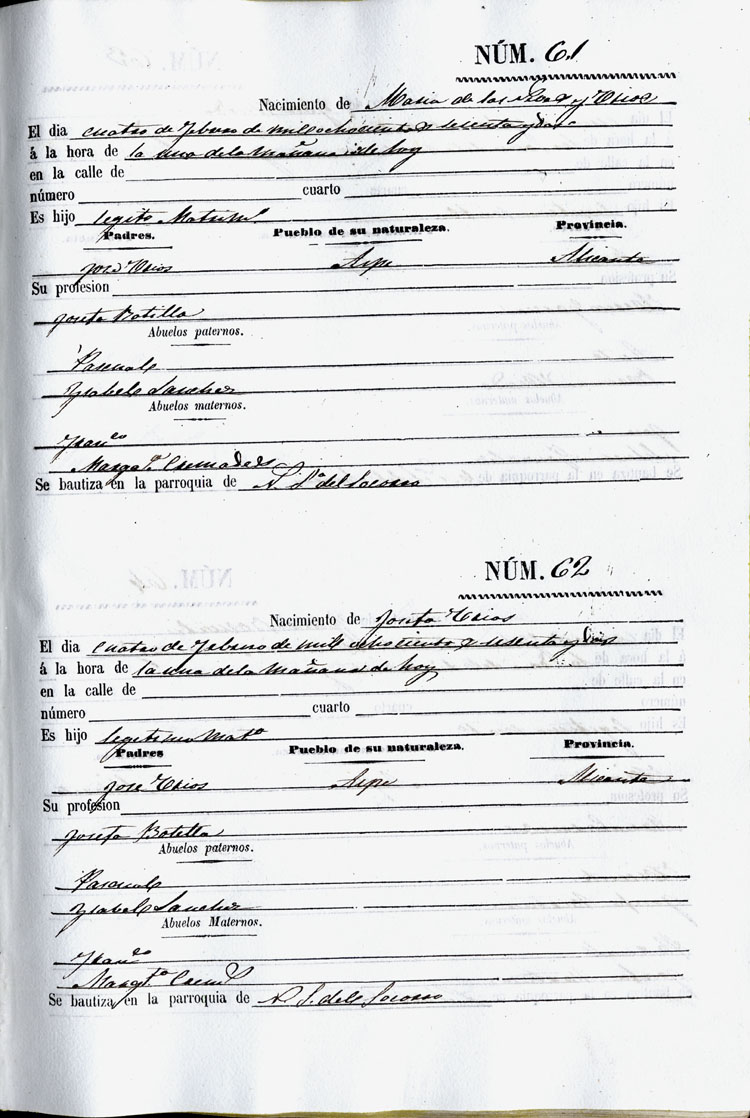 NÚM. 61
Nacimiento de Maria de los
El dia cuatro de Febrero de mil ochocientos sesenta y dos
á la hora de la una de la mañana de hoy
en la calle de
número cuarto
Es hijo legito Matrimo
Padres. Pueblo de su naturaleza. Provincia.
José Aspe Alicante
Su profesion
Josefa Botella
Abuelos paternos.
Pascual
Ysabel Sanchez
Abuelos maternos.
Franco
Margta Cremades
Se bautiza en la parroquia de N. Sra del Socorro
NÚM. 62
Nacimiento de Josefa
El dia cuatro de Febrero de mil ochocientos sesenta y dos
á la hora de la una de la mañana de hoy
en la calle de
número cuarto
Es hijo legitimo Mato
Padres Pueblo de su naturaleza. Provincia.
José Aspe Alicante
Su profesion
Josefa Botella
Abuelos paternos.
Pascual
Ysabel Sanchez
Abuelos Maternos.
Franco
Margta Crem
Se bautiza en la parroquia de N. S. del Socorro